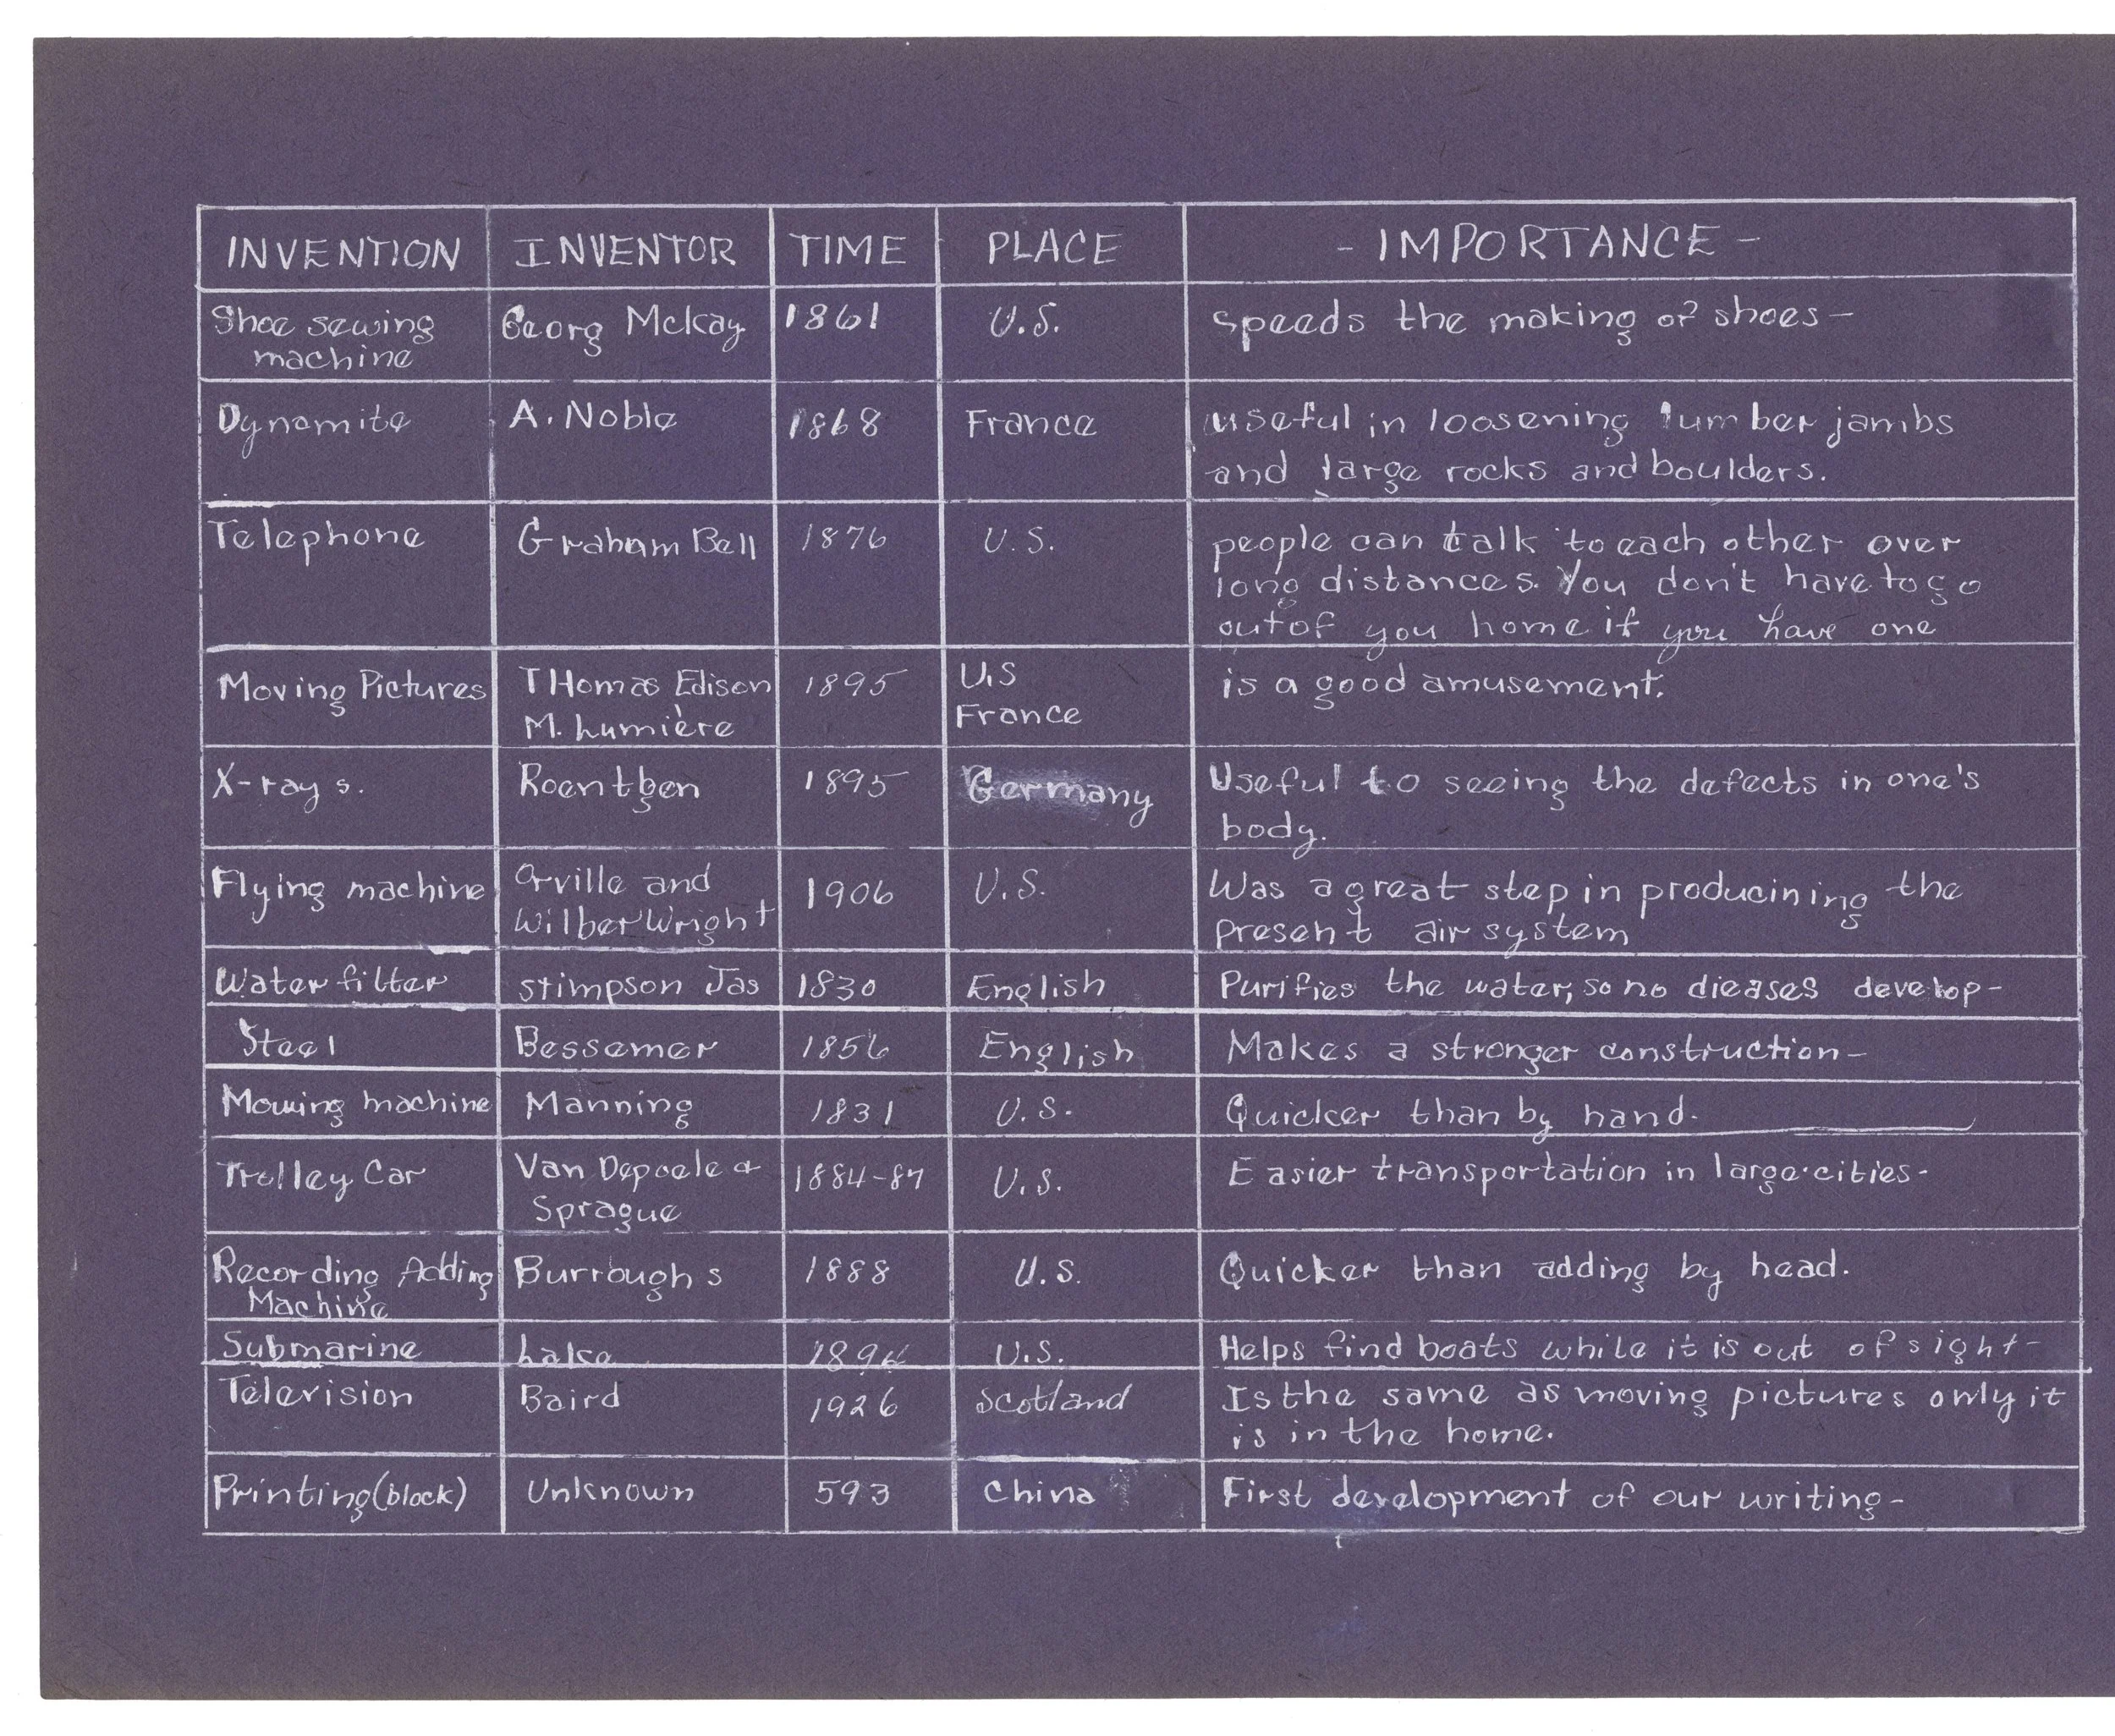 INVENTION INVENTOR TIME PLACE - IMPORTANCE -
Shoe sewing Georg Mckay 1861 U.S. speeds the making of shoes-
machine
Dynomite A. Noble 1868 France useful in loosening lumber jambs
and large rocks and boulders.
Telephone Graham Bell 1876 U.S. people can talk to each other over
long distances. You don't have to go
out of you home if you have one
Moving Pictures THomas Edison 1895 U.S is a good amusement.
M. Lumière France
X-rays. Roentgen 1895 Germany Useful to seeing the defects in one's
body.
Flying machine Orville and 1906 U.S. Was a great step in producining the
Wilber Wright present air system
Water filter stimpson Jas 1830 English Purifies the water, so no dieases develop-
Steel Bessemer 1856 English Makes a stronger construction-
Mowing machine Manning 1831 U.S. Quicker than by hand.
Trolley Car Van Depoele & 1884-87 U.S. Easier transportation in large cities.
Sprague
Recording Adding Burroughs 1888 U.S. Quicker than adding by head.
Machine
Submarine Lake U.S. Helps find boats while it is out of sight-
Television Baird 1926 Scotland Is the same as moving pictures only it
is in the home.
Printing (block) Unknown 593 China First development of our writing-